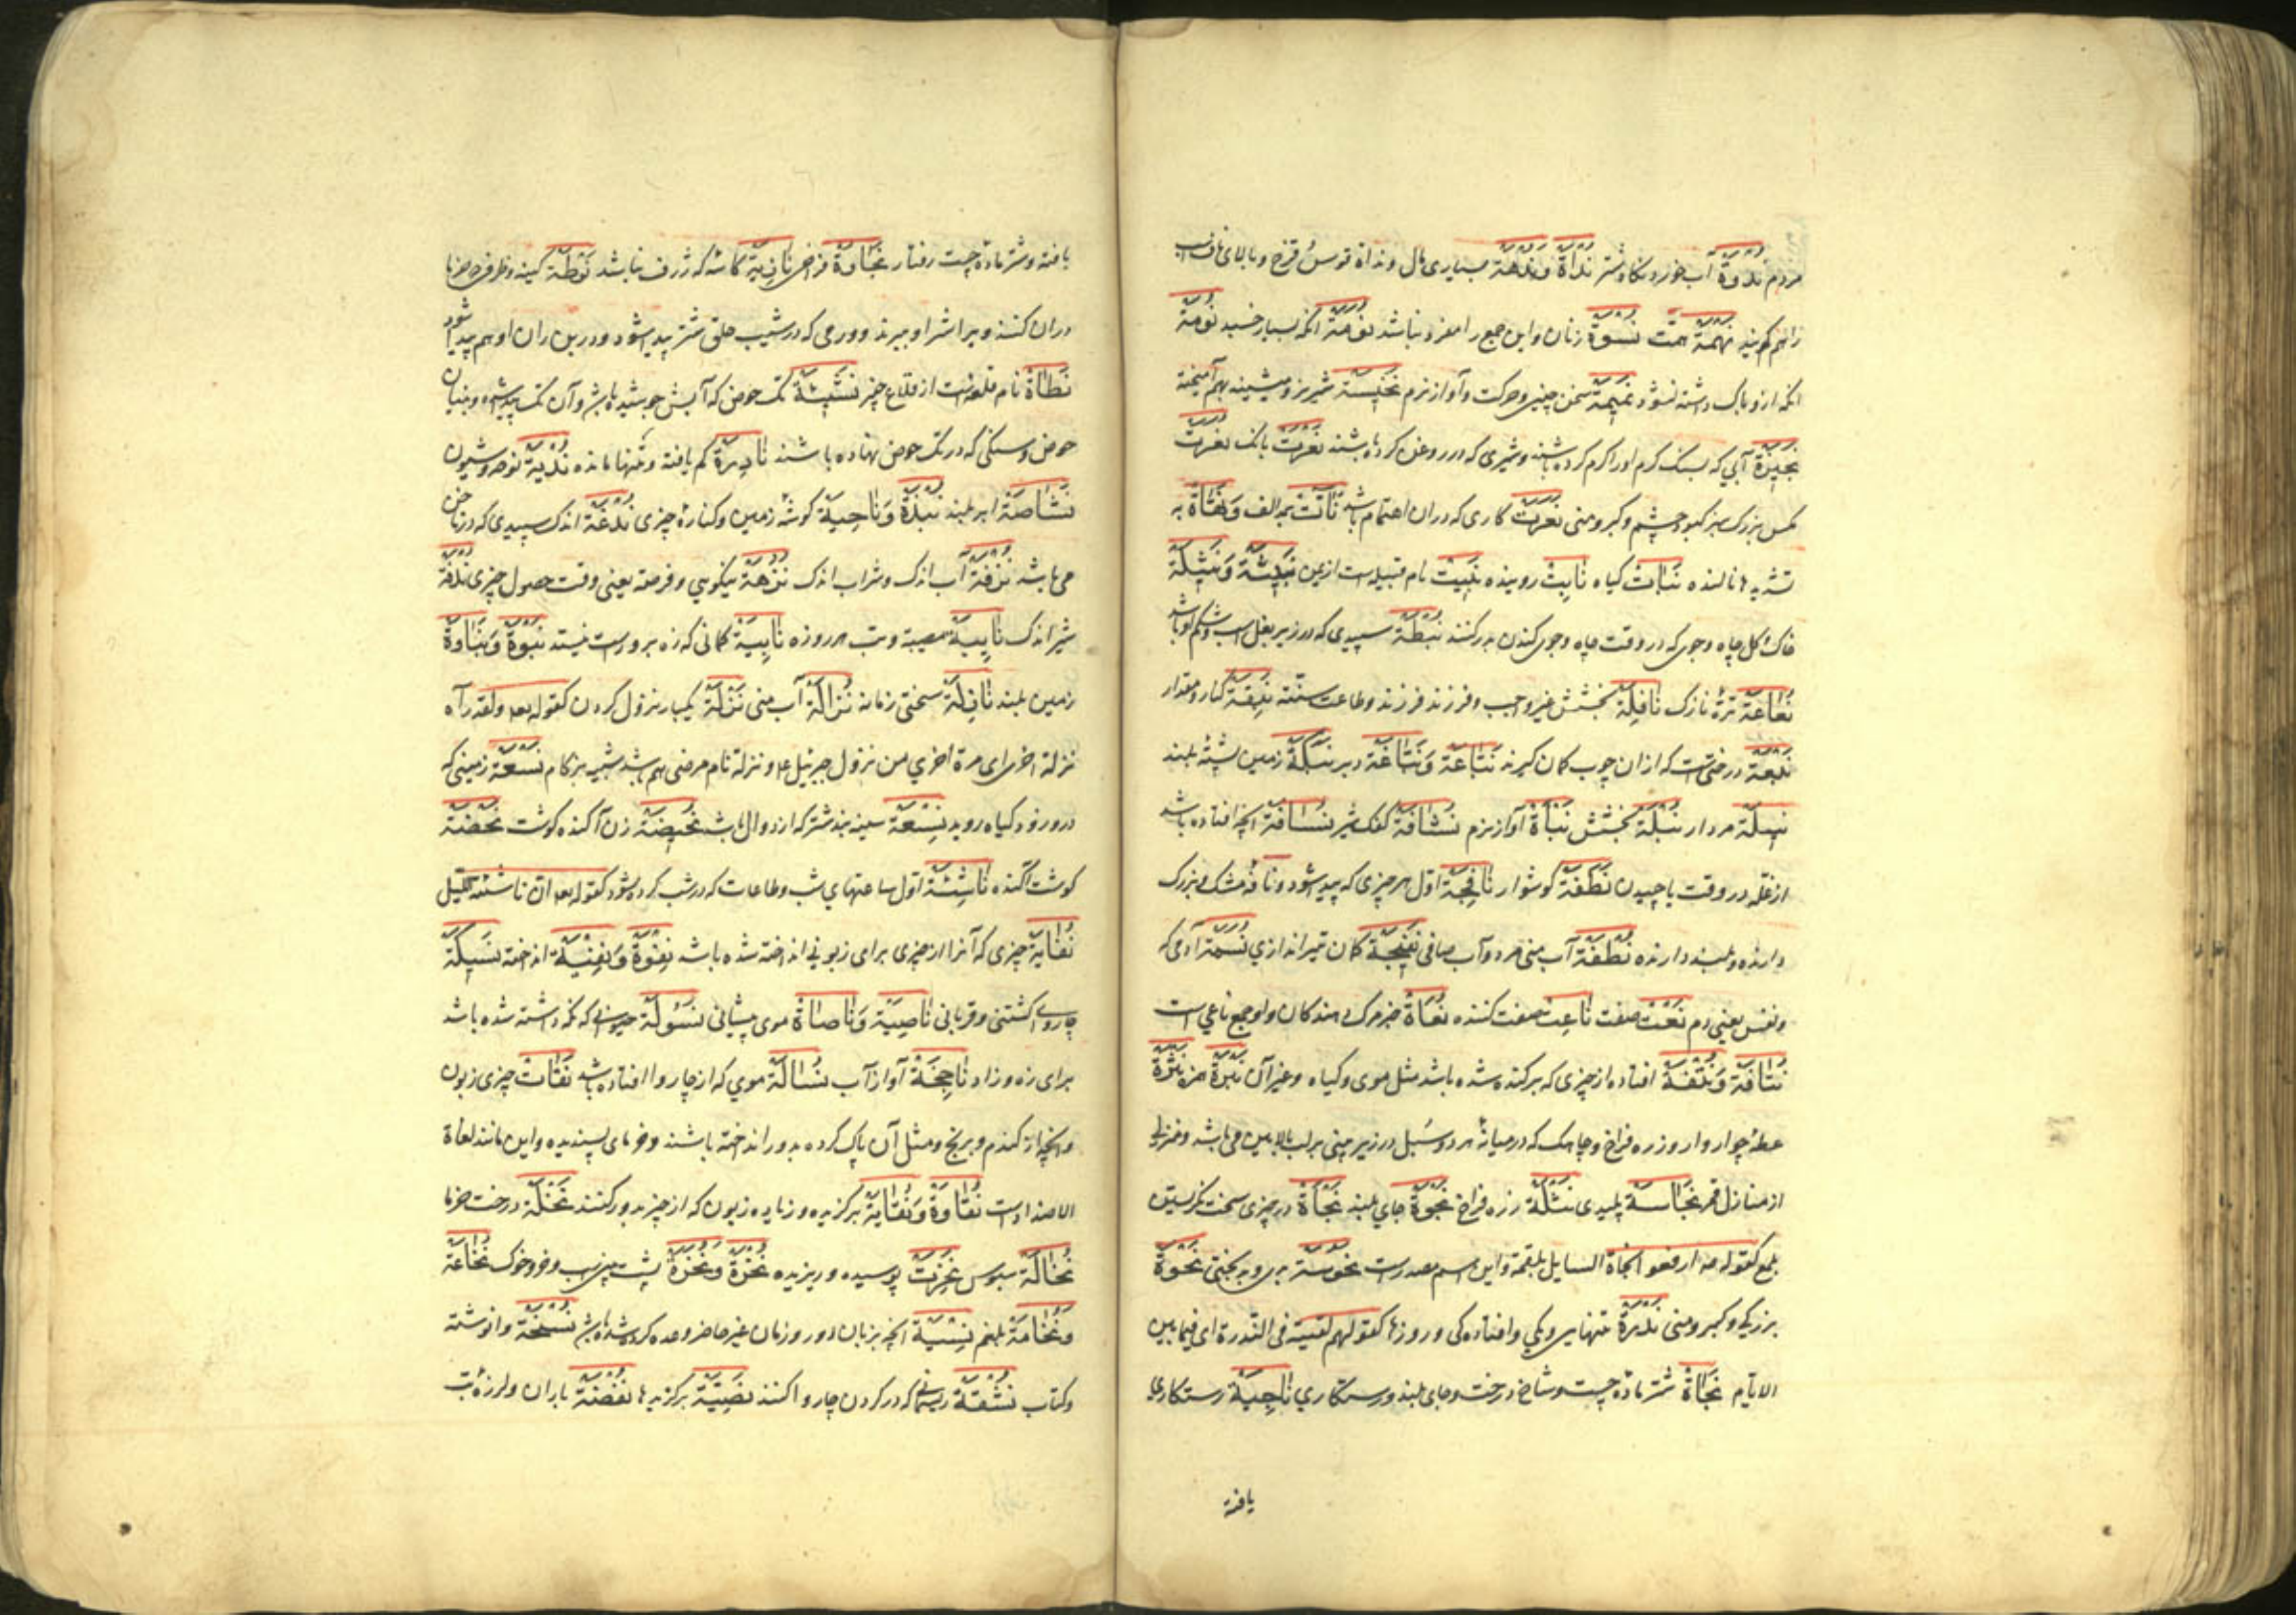 مردم نُدْوَة آب خورد نکاه شتر نَدْأَة وَنَدْهَة بسیاری مال و نداة قوس قزح و بالای ناف اسب
را هم کویند نَهْمَة همّت نِسْوَة زنان و این جمع را مفرد نباشد نُوَمَة آنکه بسیار خسپد نُومَة
آنکه ازو باک داشته نشود نَمِيمَة سخن چینی و حرکت و آواز نرم نَخِيسَة شیر بز و میشینه بهم آمیخته
آبی که بسنک کرم او را کرم کرده باشند و شیری که در روغن کرده باشند نَعْرَت بانک نُعَرَت
مکس بزرک سبز کبود چشم و کبر و منی نُعَرَت کاری که دران اهتمام باشد نَآّت بمد الف به
تشدید ها نالنده نَبَات کیاه نَابِت روینده نَبِيت نام قبیله است از یمن نَبِيثَة وَنَثِيلَة
خاک و کل چاه و جوی که در وقت چاه و جوی کندن بدر کنند نُبْطَة سپیدی که در زیر بغل اسب و شکم او باشد
نُعَاعَة ترهٔ نازک نَافِلَة بخشش غیر واجب و فرزند فرزند و طاعت سنّت کنار و مقدار
نَبْعَة درختیست که از ان چوب کمان کیرند نَتَاعَة وَنَبَّاغَة دبر نَبَكَة زمین پشته بلند
مردار نُبْلَة بخشش نَبْأَة آواز نرم نُشَافَة کفک شیر نُسَافَة آنچه افتاده باشد
از غلّه در وقت پاچیدن نَطَفَة کوشوار نَافِجَة اوّل هر چیزی که پیدا شود و نافهٔ مشک و بزرک
دارنده و بلند دارنده نُطْفَة آب منی مرد و آب صافی نَفِيجَة کمان تیراندازی نَسَمَة آدمی که
و نفس یعنی دم نَعْت صفت نَاعِت صفت کننده نُعَاة خبر مرک دهندکان و او جمع ناعی است
نُتَافَة وَنُتْفَة افتاده از چیزی که برکنده شده باشد مثل موی و کیاه و غیر آن نَبْرَة همزه نَثْرَة
عطسهٔ چاروا و زره فراخ و چاهک که در میانهٔ هر دو سبل در زیر بینی بر لب بالایین می باشد و منزلی
از منازل قمر نَجَاسَة پلیدی نَثْلَة زره فراخ نَجْوَة جای بلند نَجْأَة در چیزی سخت نکریستن
بطمع کقوله صه ارفعوا نجاة السایل بلقمة و این اسم مصدرست نُحُوسَة بدی و بدبختی نَخْوَة
بزرکی و کبر و منی نَدْرَة تنهایی و یکی و افتادکی و روزها کقولهم لقیته فی الندرة ای فیما بین
الایّام نَجَاة شتر مادهٔ چست و شاخ درخت و جای بلند و رستکاری نَاجِيَة رستکاری
یافته
یافته و شتر مادهٔ چست رفتار نَجَاوَة فراخی کاسه که ژرف نباشد نَوْطَة کینه و ظرفی خرما
دران کنند و بر اشتر او ببرند و ورمی که در شیب حلق شتر پیدا شود و در بن ران او هم پیدا شود
نَطَاة نام قلعه ایست از قلاع خیبر تک حوض که آبش جوشیده باشد و آن تک پیدا شده و بنیان
حوض و سنکی که در تک حوض نهاده باشند نَادِرَة کم یافته و تنها مانده نُدْبَة نوحه و شیون
نَشَاصَة ابر بلند نُبْذَة وَنَاحِيَة کوشهٔ زمین و کنارهٔ چیزی نُدْغَة اندک سپیدی که در ناخن
می باشد نُزْفَة آب اندک و شراب اندک نُزْهَة نیکویی و فرصة یعنی وقت حصول چیزی
شیر اندک نَايِبَة مصیبة و تب هر روزه نَابِيَة کمانی که زه برو راست نیستد نَبْوَة وَنَبَاوَة
زمین بلند نَازِلَة سختی زمانه نُزَالَة آب منی نَزْلَة یکبار نزول کردن کقوله تعه ولقد رآه
نزلة اخری ای مرة اخری من نزول جبرئیل عم و نزلة نام مرضی هم باشد شبیه بزکام نَسْعَة زمینی که
درو زود کیاه روید نِسْعَة سینه بند شتر که از دوال باشد نَحِيضَة زن آکنده کوشت نَحْضَة
کوشت آکنده نَاشِئَة اوّل ساعتهای شب و طاعات که در شب کرده شود کقوله تعه ان ناشئة اللّیل
نُفَايَة چیزی که آنرا از چیزی برای زبونی انداخته شده باشد نِفْوَة وَنِفْيَة انداخته نَسِيكَة
چاروای کشتنی و قربانی نَاصِيَة وَنَاصَاة موی پیشانی نَسُولَة حیوانی که نکه داشته شده باشد
برای زه و زاد آواز آب نُسَالَة موی که از چاروا افتاده باشد نَفَات چیزی زبون
و آنچه از کندم و برنج و مثل آن پاک کرده بدور انداخته باشند و خرمای پسندیده و این مانند لغاة
الاضداد است نُقَاوَة وَنُقَايَة برکزیده و زبون که از چیز بدور کنند نَخْلَة درخت خرما
نُخَالَة سبوس نَخِرَت پوسیده و ریزیده نُخْرَة وَنُخَرَة پیش بینی اسب و خر و خوک نُخَاعَة
وَنُخَامَة بلغم نِسْيَة آنچه بزبان دور و زمان غیر حاضر وعده کرده شده باشد نُسْخَة وانوشته
و کتاب نُشْقَة ریسمانی که در کردن چاروا کنند نَصِيَّة برکزیدها نُفْضَة باران و لرزهٔ تب